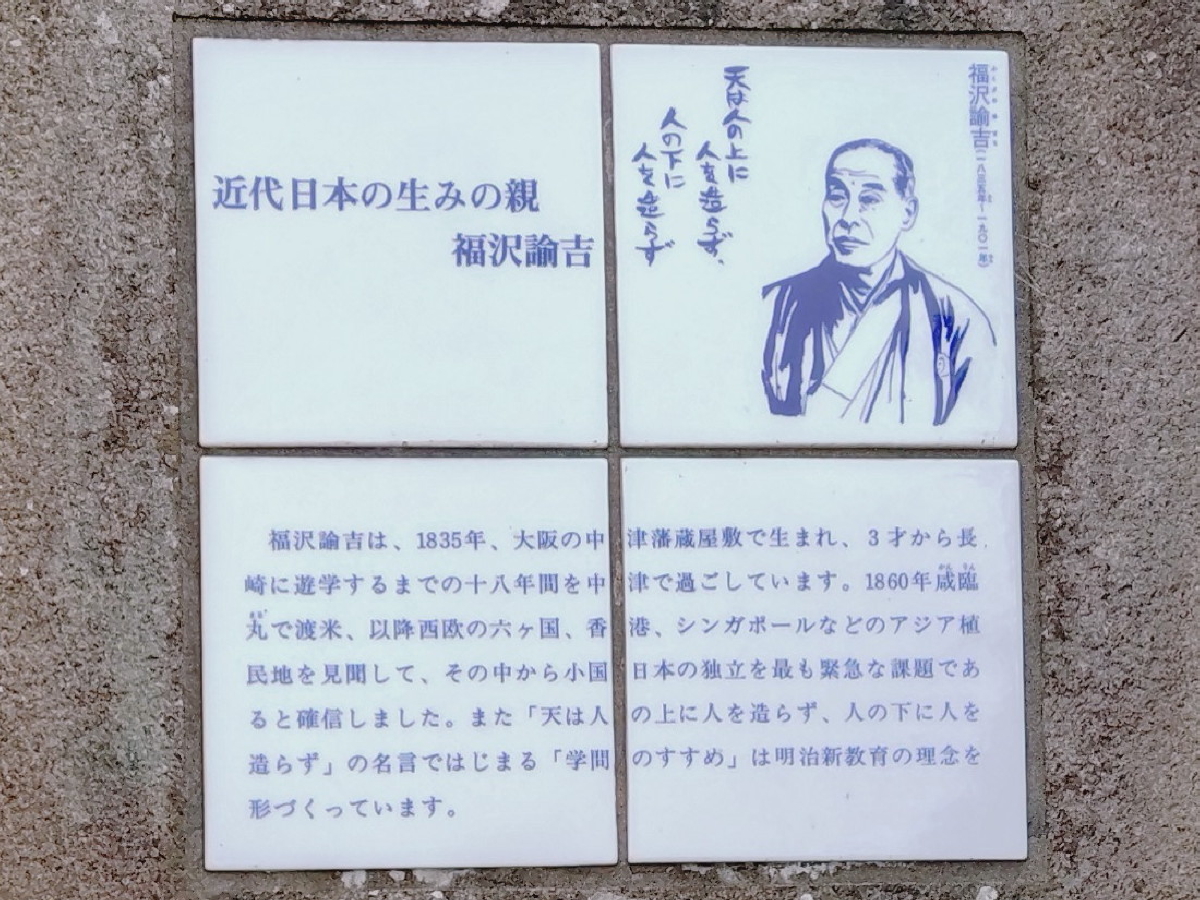 近代日本の生みの親
福沢諭吉
福沢諭吉(一八三五年~一九〇一年)
天は人の上に
人を造らず、
人の下に
人を造らず
福沢諭吉は、1835年、大阪の中津藩蔵屋敷で生まれ、3才から長
崎に遊学するまでの十八年間を中津で過ごしています。1860年咸臨
丸で渡米、以降西欧の六ヶ国、香港、シンガポールなどのアジア植
民地を見聞して、その中から小国日本の独立を最も緊急な課題であ
ると確信しました。また「天は人の上に人を造らず、人の下に人を
造らず」の名言ではじまる「学問のすすめ」は明治新教育の理念を
形づくっています。